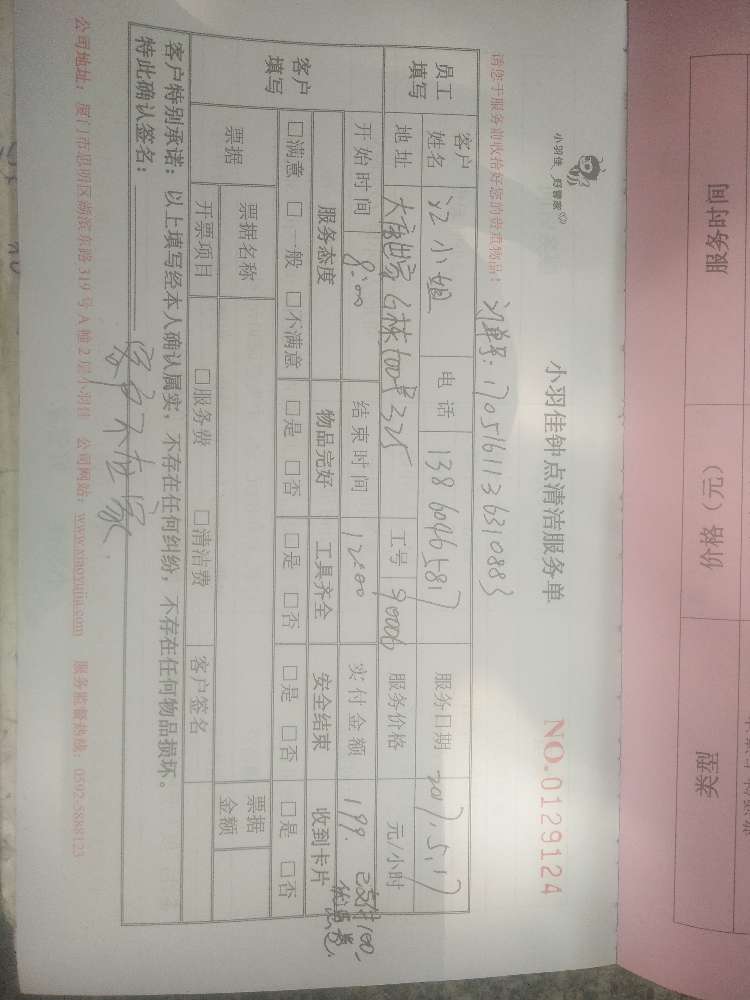 小羽佳 好管家
小羽佳钟点清洁服务单
NO.0129124
请您于服务前收拾好您的贵重物品!
订单号:1705161136310883
员工填写
客户姓名 江小姐 电话 13860465817 服务日期 2017.5.17
地址 6栋 325 工号 90006 服务价格 元/小时
客户填写
开始时间 8:00 结束时间 12:00 实付金额 199. 已支付100.
优惠卷
服务态度 物品完好 工具齐全 安全结束 收到卡片
□满意 □一般 □不满意 □是 □否 □是 □否 □是 □否 □是 □否
票据 票据名称 票据金额
开票项目 □服务费 □清洁费 客户签名
客户特别承诺:以上填写经本人确认属实,不存在任何纠纷,不存在任何物品损坏。
特此确认签名: 客户不在家
公司地址:厦门市思明区湖滨东路319号A幢2层小羽佳 公司网站:www.xiaoyujia.com 服务监督热线:0592-5888123
服务时间
价格(元)
类型